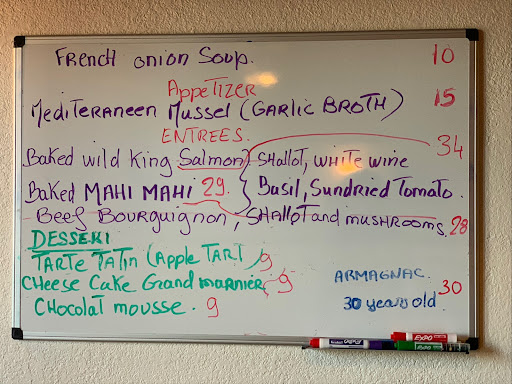 French onion Soup. 10
Appetizer
Mediteraneen Mussel (Garlic Broth) 15
ENTREES.
Baked wild King Salmon) SHallot, white wine 34
Baked MAHI MAHI 29. Basil, Sundried Tomato.
Beef Bourguignon, SHallot and mushrooms. 28
DESSERT
TARTE TATIN (Apple TART) 9
CHeese Cake Grand marnier 9
CHocolat mousse. 9
ARMAGNAC. 30
30 years old
EXPO
EXPO